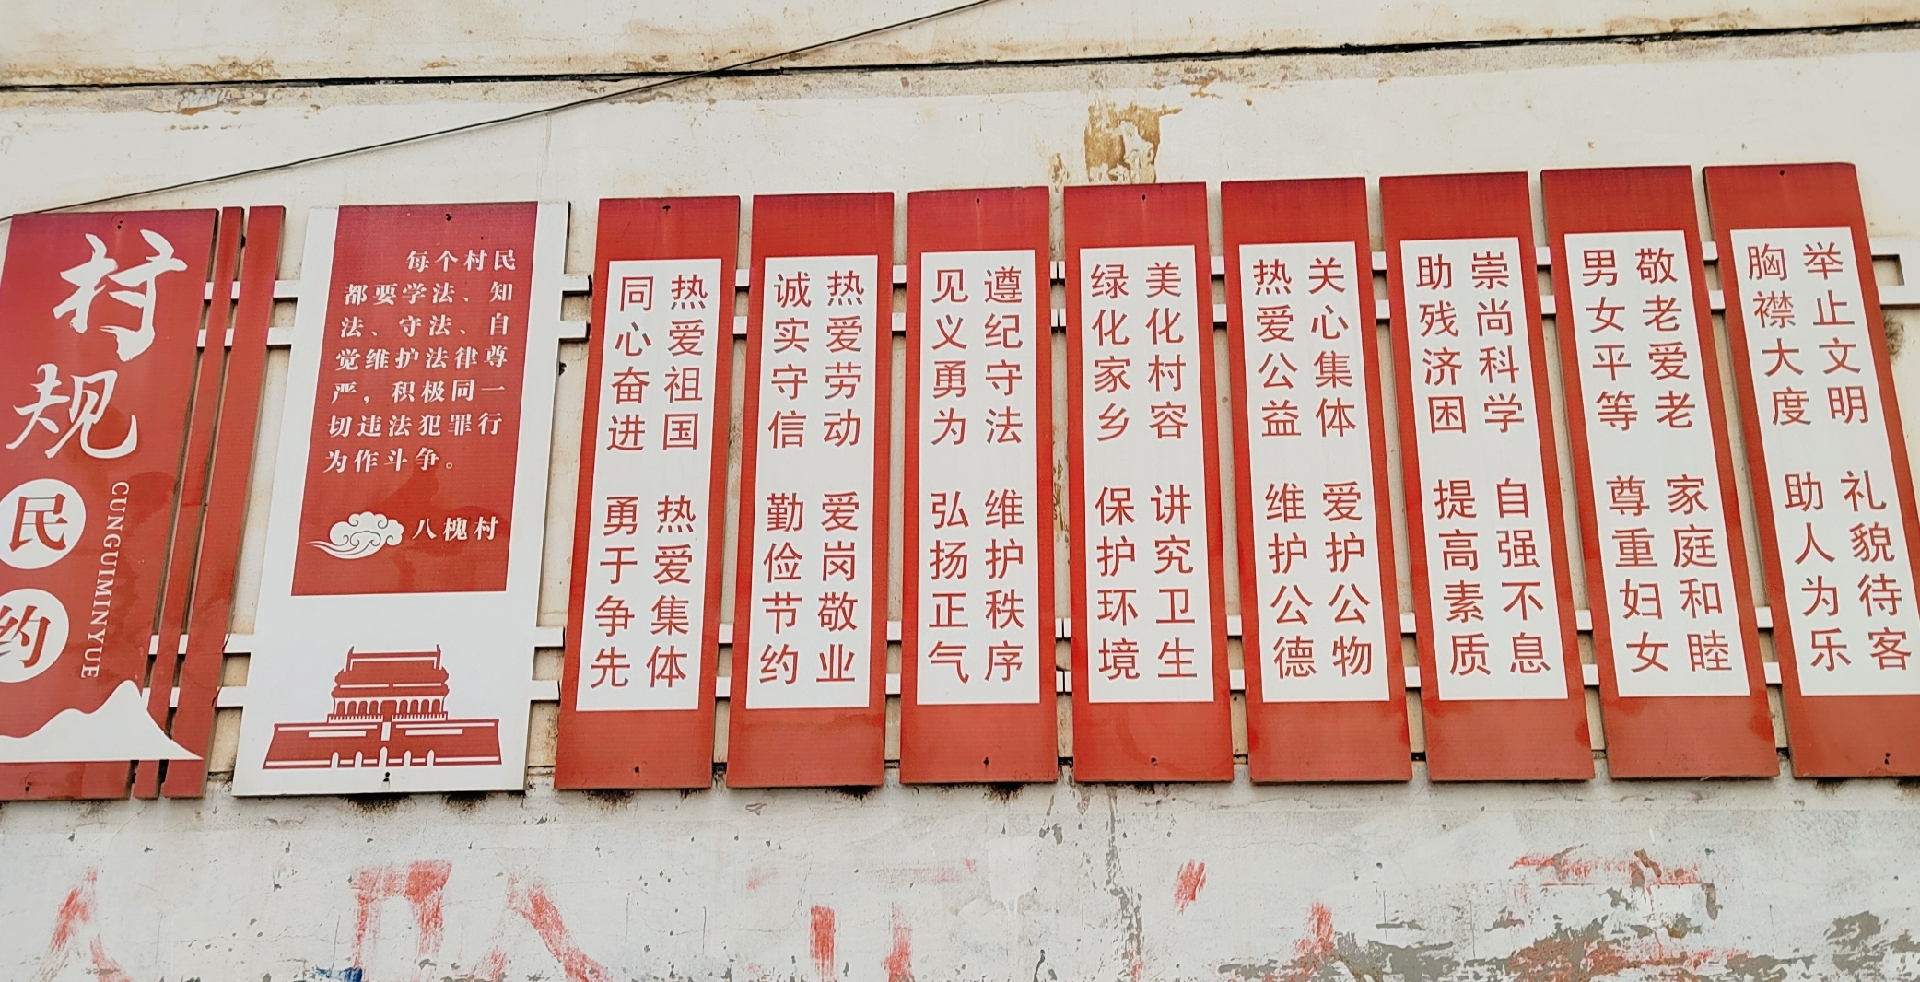 村规
民约
CUNGUIMINYUE
每个村民
都要学法、知
法、守法、自
觉维护法律尊
严，积极同一
切违法犯罪行
为作斗争。
八槐村
热爱祖国 热爱集体
同心奋进 勇于争先
热爱劳动 爱岗敬业
诚实守信 勤俭节约
遵纪守法 维护秩序
见义勇为 弘扬正气
美化村容 讲究卫生
绿化家乡 保护环境
关心集体 爱护公物
热爱公益 维护公德
崇尚科学 自强不息
助残济困 提高素质
敬老爱老 家庭和睦
男女平等 尊重妇女
举止文明 礼貌待客
胸襟大度 助人为乐